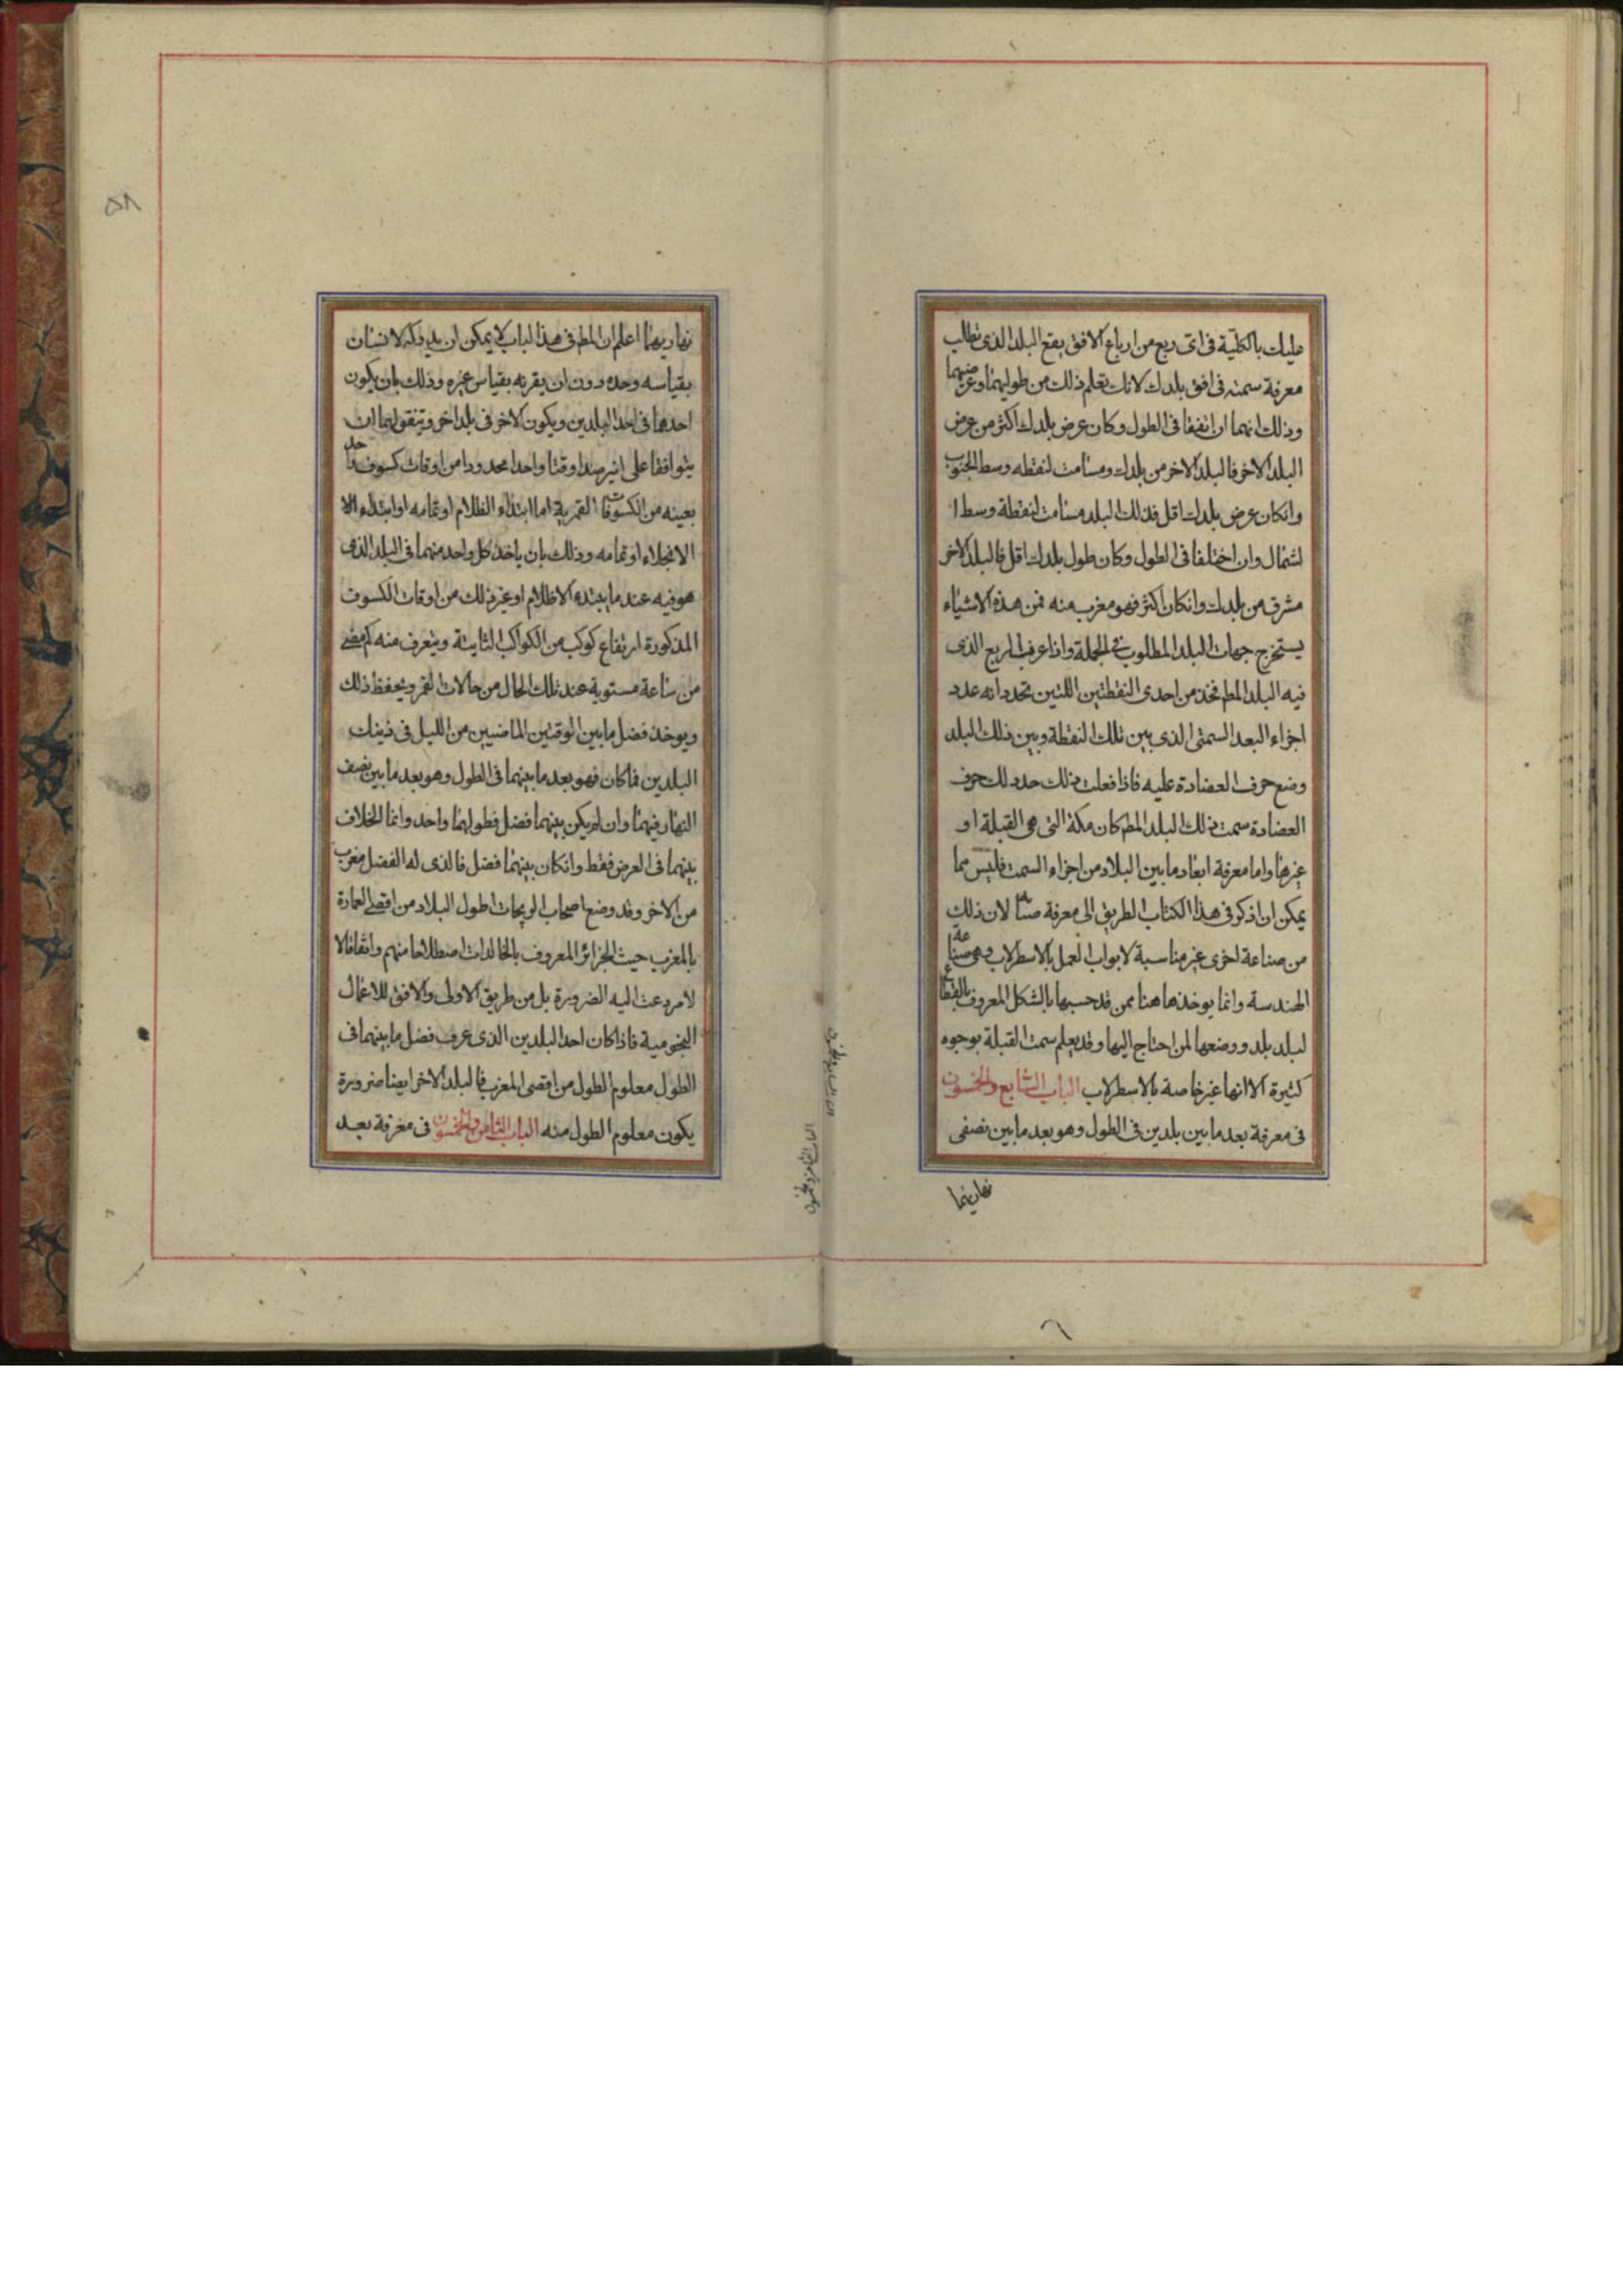 عليك بالكلية فى اى ربع من ارباع الافق يقع البلد الذى تطلب
معرفة سمته فى افق بلدك لانك تعلم ذلك من طوليهما وعرضيهما
وذلك انهما ان اتفقا فى الطول وكان عرض بلدك اكثر من عرض
البلد الاخر فالبلد الاخر من بلدك ومسامت لنقطه وسط الجنوب
وانكان عرض بلدك اقل فذلك البلد مسامت لنقطة وسط ا
لشمال وان اختلفا فى الطول وكان طول بلدك اقل فالبلد الاخر
مشرق من بلدك وانكان اكثر فهو مغرب منه فمن هذه الاشياء
يستخرج جهات البلد المطلوب فى الجملة واذا عرفت الربع الذى
فيه البلد المط فخذ من احدى النقطتين اللتين تحددانه عدد
اجزاء البعد السمتى الذى بين تلك النقطة وبين ذلك البلد
وضع حرف العضادة عليه فاذا فعلت ذلك حدد لك حرف
العضادة سمت ذلك البلد المط كان مكة التى هى القبلة او
غيرها واما معرفة ابعاد ما بين البلاد من اجزاء السمت فليس مما
يمكن ان اذكر فى هذا الكتاب الطريق الى معرفة لان ذلك
من صناعة اخرى غير مناسبة لابواب العمل بالاسطرلاب وهى صناعة
الهندسة وانما يوخذ ها هنا ممن قد حسبها بالشكل المعروف بالقطاع
لبلد بلد ووضعها لمن احتاج اليها وقد يعلم سمت القبلة بوجوه
كثيرة الا انها غير خاصة بالاسطرلاب الباب السابع والخمسون
فى معرفة بعد ما بين بلدين فى الطول وهو بعد ما بين نصفى
نهاريهما
الباب السابع والخمسون
نهاريهما اعلم ان المط فى هذا الباب لا يمكن ان يدركه الانسان
بقياسه وحده دون ان يقرنه بقياس غيره وذلك بان يكون
احدهما فى احد البلدين ويكون الاخر فى بلد اخر ويتفق لهما ان
يتوافقا على ان يرصدا وقتا واحدا محدودا من اوقات كسوف واحد
بعينه من الكسوفات القمرية اما ابتداء الظلام او تمامه او ابتداء الا
الانجلاء او تمامه وذلك بان ياخذ كل واحد منهما فى البلد الذى
هو فيه عند ما يبتدء الاظلام او غير ذلك من اوقات الكسوف
المذكورة ارتفاع كوكب من الكواكب الثابتة ويتعرف منه كم مضى
من ساعة مستوية عند تلك الحال من حالات القمر ويحفظ ذلك
ويوخذ فضل ما بين الوقتين الماضيين من الليل فى ذينك
البلدين فما كان فهو بعد ما بينهما فى الطول وهو بعد ما بين نصف
النهار فيهما وان لم يكن بينهما فضل فطولهما واحد وانما الخلاف
بينهما فى العرض فقط وانكان بينهما فضل فالذى له الفضل مغرب
من الاخر وقد وضع اصحاب الزيجات اطول البلاد من اقصى العمارة
بالمغرب حيث الجزائر المعروف بالخالدات اصطلاحا منهم واتفاقا لا
لامر دعت اليه الضرورة بل من طريق الاولى والاوفق للاعمال
النجومية فاذا كان احد البلدين الذى عرف فضل ما بينهما فى
الطول معلوم الطول من اقصى المغرب فالبلد الاخر ايضا ضرورة
يكون معلوم الطول منه الباب الثامن والخمسون فى معرفة بعد
الباب الثامن والخمسون
٥٨